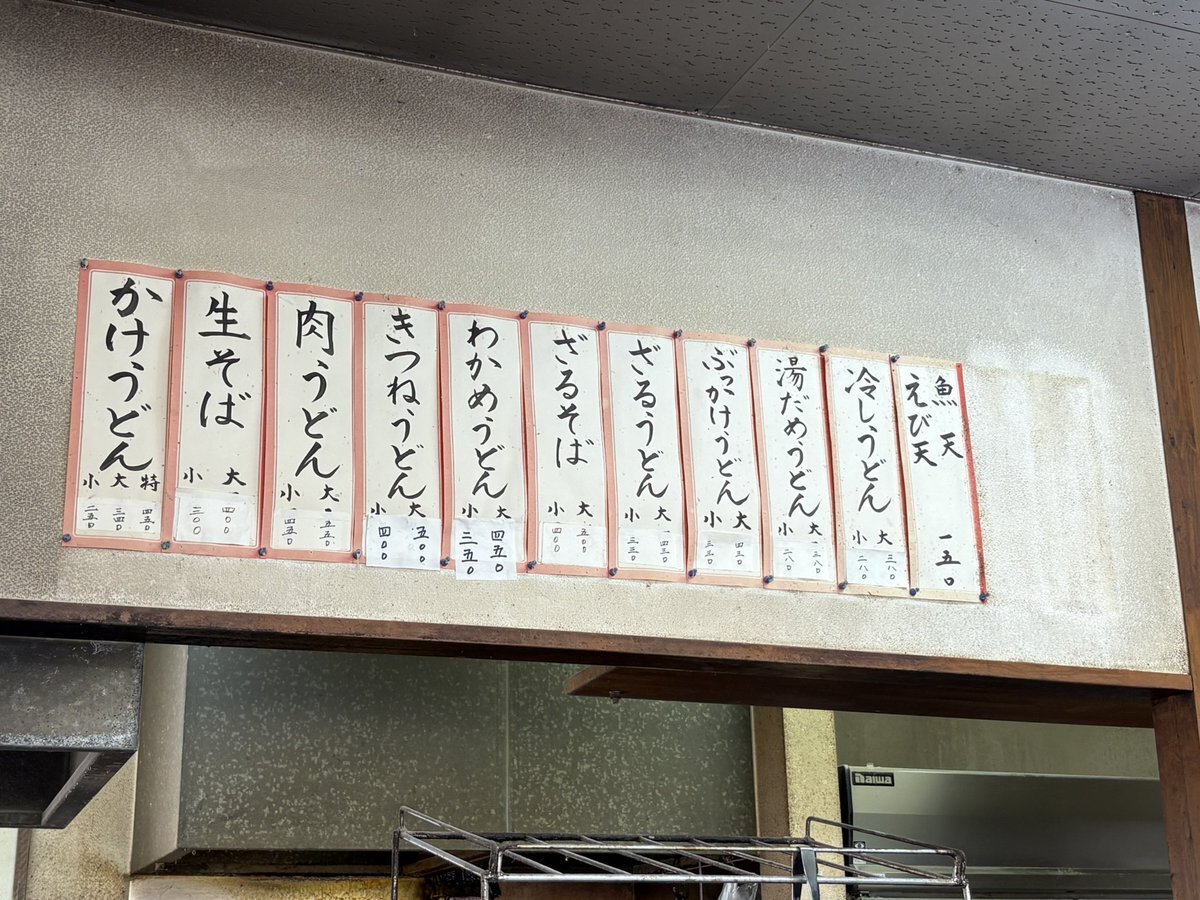 魚天
えび天
一五〇
冷しうどん
大 三八〇
小 二八〇
湯だめうどん
大 三八〇
小 二八〇
ぶっかけうどん
大 四三〇
小 三三〇
ざるうどん
大 四三〇
小 三三〇
ざるそば
大 五〇〇
小 四〇〇
わかめうどん
大 四五〇
小 三五〇
きつねうどん
大 五〇〇
小 四〇〇
肉うどん
大 五五〇
小 四五〇
生そば
大 四〇〇
小 三〇〇
かけうどん
特 四五〇
大 三四〇
小 二五〇
Daiwa